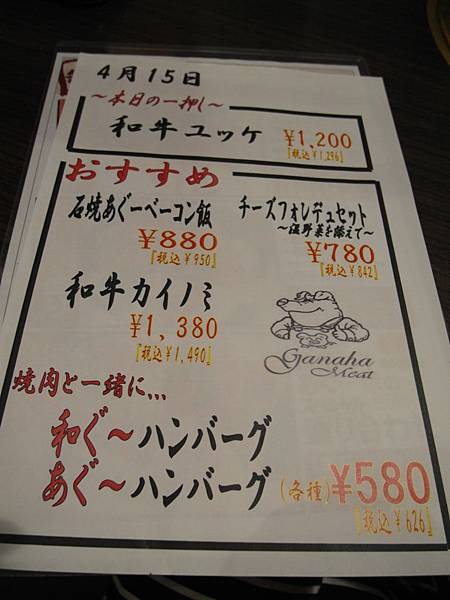 4月15日
～本日の一押し～
和牛ユッケ ¥1,200
『税込¥1,296』
おすすめ
石焼あぐーベーコン飯
¥880
『税込¥950』
チーズフォンデュセット
～温野菜を添えて～
¥780
『税込¥842』
和牛カイノミ
¥1,380
『税込¥1,490』
Ganaha
Meat
焼肉と一緒に...
和ぐ～ハンバーグ
あぐ～ハンバーグ (各種)¥580
『税込¥626』